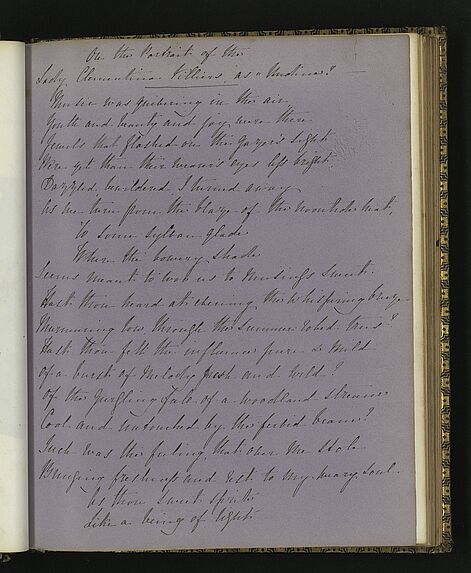 On the Portrait of the
Lady Clementina Villiers as "Undine"
Music was quivering in the air,
Youth and beauty and joy, were there
Jewels that flashed on the gazer's sight
Were yet than their wearer's eyes less bright
Dazzled, bewildered I turned away
As we turn from the blaze of the noontide heat,
To some sylvan glade
Where the bowery shade
Seems meant to woo us to Musings sweet.
Hast thou heard at evening the whispering breeze
Murmuring low, through the summer robed trees?
Hast thou felt the influence pure & Mild
of a burst of Melody fresh and wild?
Of the gurgling fall of a woodland stream
Cool and untouched by the fervid beam?
Such was the feeling that over me Stole
Bringing freshness and rest to my weary soul.
As thou sweet spirit
Like a being of light